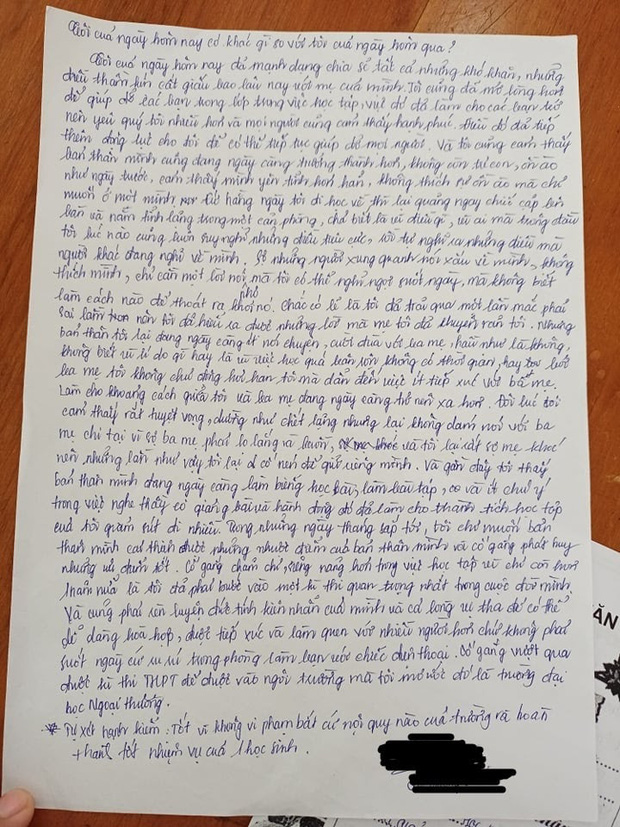 Tôi của ngày hôm nay có khác gì so với tôi của ngày hôm qua?
Tôi của ngày hôm nay đã mạnh dạng chia sẻ tất cả những khó khăn, những
điều thầm kín cất giấu bao lâu nay với mẹ của mình. Tôi cũng đã mở lòng hơn
để giúp đỡ các bạn trong lớp trong việc học tập, việc đó đã làm cho các bạn trở
nên yêu quý tôi nhiều hơn và mọi người cũng cảm thấy hạnh phúc. Điều đó đã tiếp
thêm động lực cho tôi để có thể tiếp tục giúp đỡ mọi người. Và tôi cũng cảm thấy
bản thân mình cũng đang ngày càng trưởng thành hơn, không còn trẻ con, ồn ào
như ngày trước, cảm thấy mình yên tĩnh hơn hẳn, không thích sự ồn ào mà chỉ
muốn ở một mình cứ hằng ngày tôi đi học về thì lại quăng ngay chiếc cặp lên
bàn và nằm tĩnh lặng trong một căn phòng, chả biết là vì điều gì, vì ai mà trong đầu
tôi lúc nào cũng luôn suy nghĩ những điều tiêu cực, rồi tự nghĩ ra những điều mà
người khác đang nghĩ về mình. Sợ những người xung quanh nói xấu về mình, không
thích mình, chỉ cần một lời nói nhỏ mà tôi có thể nghĩ ngợi suốt ngày, mà không biết
làm cách nào để thoát ra khỏi nó. Chắc có lẽ là tôi đã trải qua một lần mắc phải
sai lầm trọn nên tôi đã hiểu ra được những lời mà mẹ tôi đã khuyên răn tôi. Nhưng
bản thân tôi lại đang ngày càng ít nói chuyện, cười đùa với ba mẹ, hầu như là không,
không biết vì lí do gì hay là vì việc học quá bận rộn không có thời gian, hay
ba mẹ tôi không chủ động hỏi han tôi mà dẫn đến việc ít tiếp xúc với bố mẹ.
Làm cho khoảng cách giữa tôi và ba mẹ đang ngày càng trở nên xa hơn. Đôi lúc tôi
cảm thấy rất tuyệt vọng, dường như chết lặng nhưng lại không dám nói với ba
mẹ chỉ tại vì sợ ba mẹ phải lo lắng và buồn, và tôi lại rất sợ mẹ khóc
nên những lần như vậy tôi lại cố nén để giữ riêng mình. Và gần đây tôi thấy
bản thân mình đang ngày càng làm biếng học bài, làm bài tập, và ít chú ý
trong việc nghe thầy cô giảng bài và hành động đó đã làm cho thành tích học tập
của tôi giảm sút đi nhiều. Trong những ngày tháng sắp tới, tôi chỉ muốn bản
thân mình cải thiện được những nhược điểm của bản thân mình và cố gắng phát huy
những ưu điểm tốt. Cố gắng chăm chỉ, siêng năng hơn trong việc học tập vì chỉ còn hơn
1 năm nữa là tôi đã phải bước vào một kì thi quan trọng nhất trong cuộc đời mình.
Và cũng phải rèn luyện đức tính kiên nhẫn của mình và cả lòng vị tha để có thể
dễ dàng hoà hợp, được tiếp xúc và làm quen với nhiều người hơn chứ không phải
suốt ngày cứ ru rú trong phòng làm bạn với chiếc điện thoại. Cố gắng vượt qua
được kì thi THPT để được vào ngôi trường mà tôi mơ ước đó là trường đại
học Ngoại thương.
* Tự xét hạnh kiểm: Tốt vì không vi phạm bất cứ nội quy nào của trường và hoàn
thành tốt nhiệm vụ của 1 học sinh.
ĂN